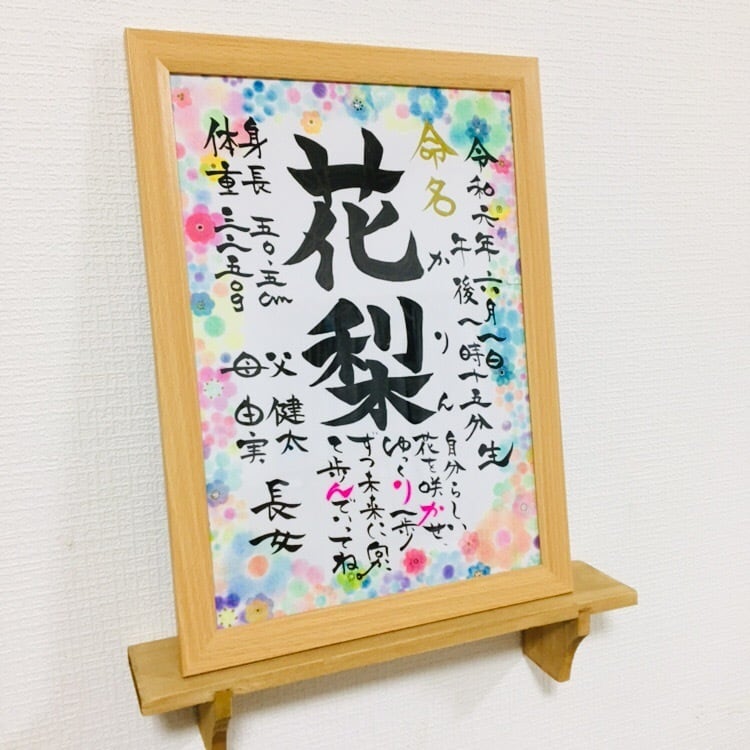 令和元年六月一日
午後一時十五分 生
命名
かりん
花梨
自分らしい
花を咲かせ、
ゆっくり一歩
ずつ未来に
と歩んでいってね。
父 健太
母 由実
長女
身長 五〇.五cm
体重 三一五〇g